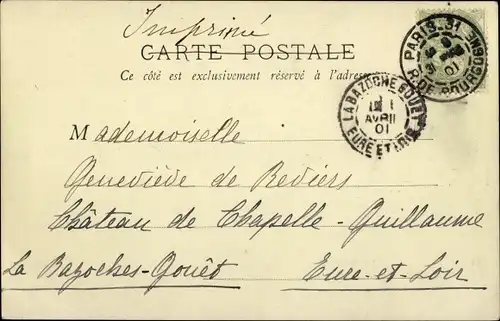 Imprimé
CARTE POSTALE
Ce côté est exclusivement réservé à l'adresse
PARIS-31
R. DE BOURGOGNE
01
LA BAZOCHE GOUET
AVRIL
01
EURE ET LOIR
Mademoiselle
Geneviève de Reviers
Château de Chapelle-Guillaume
La Bazoches-Gouët Eure-et-Loir